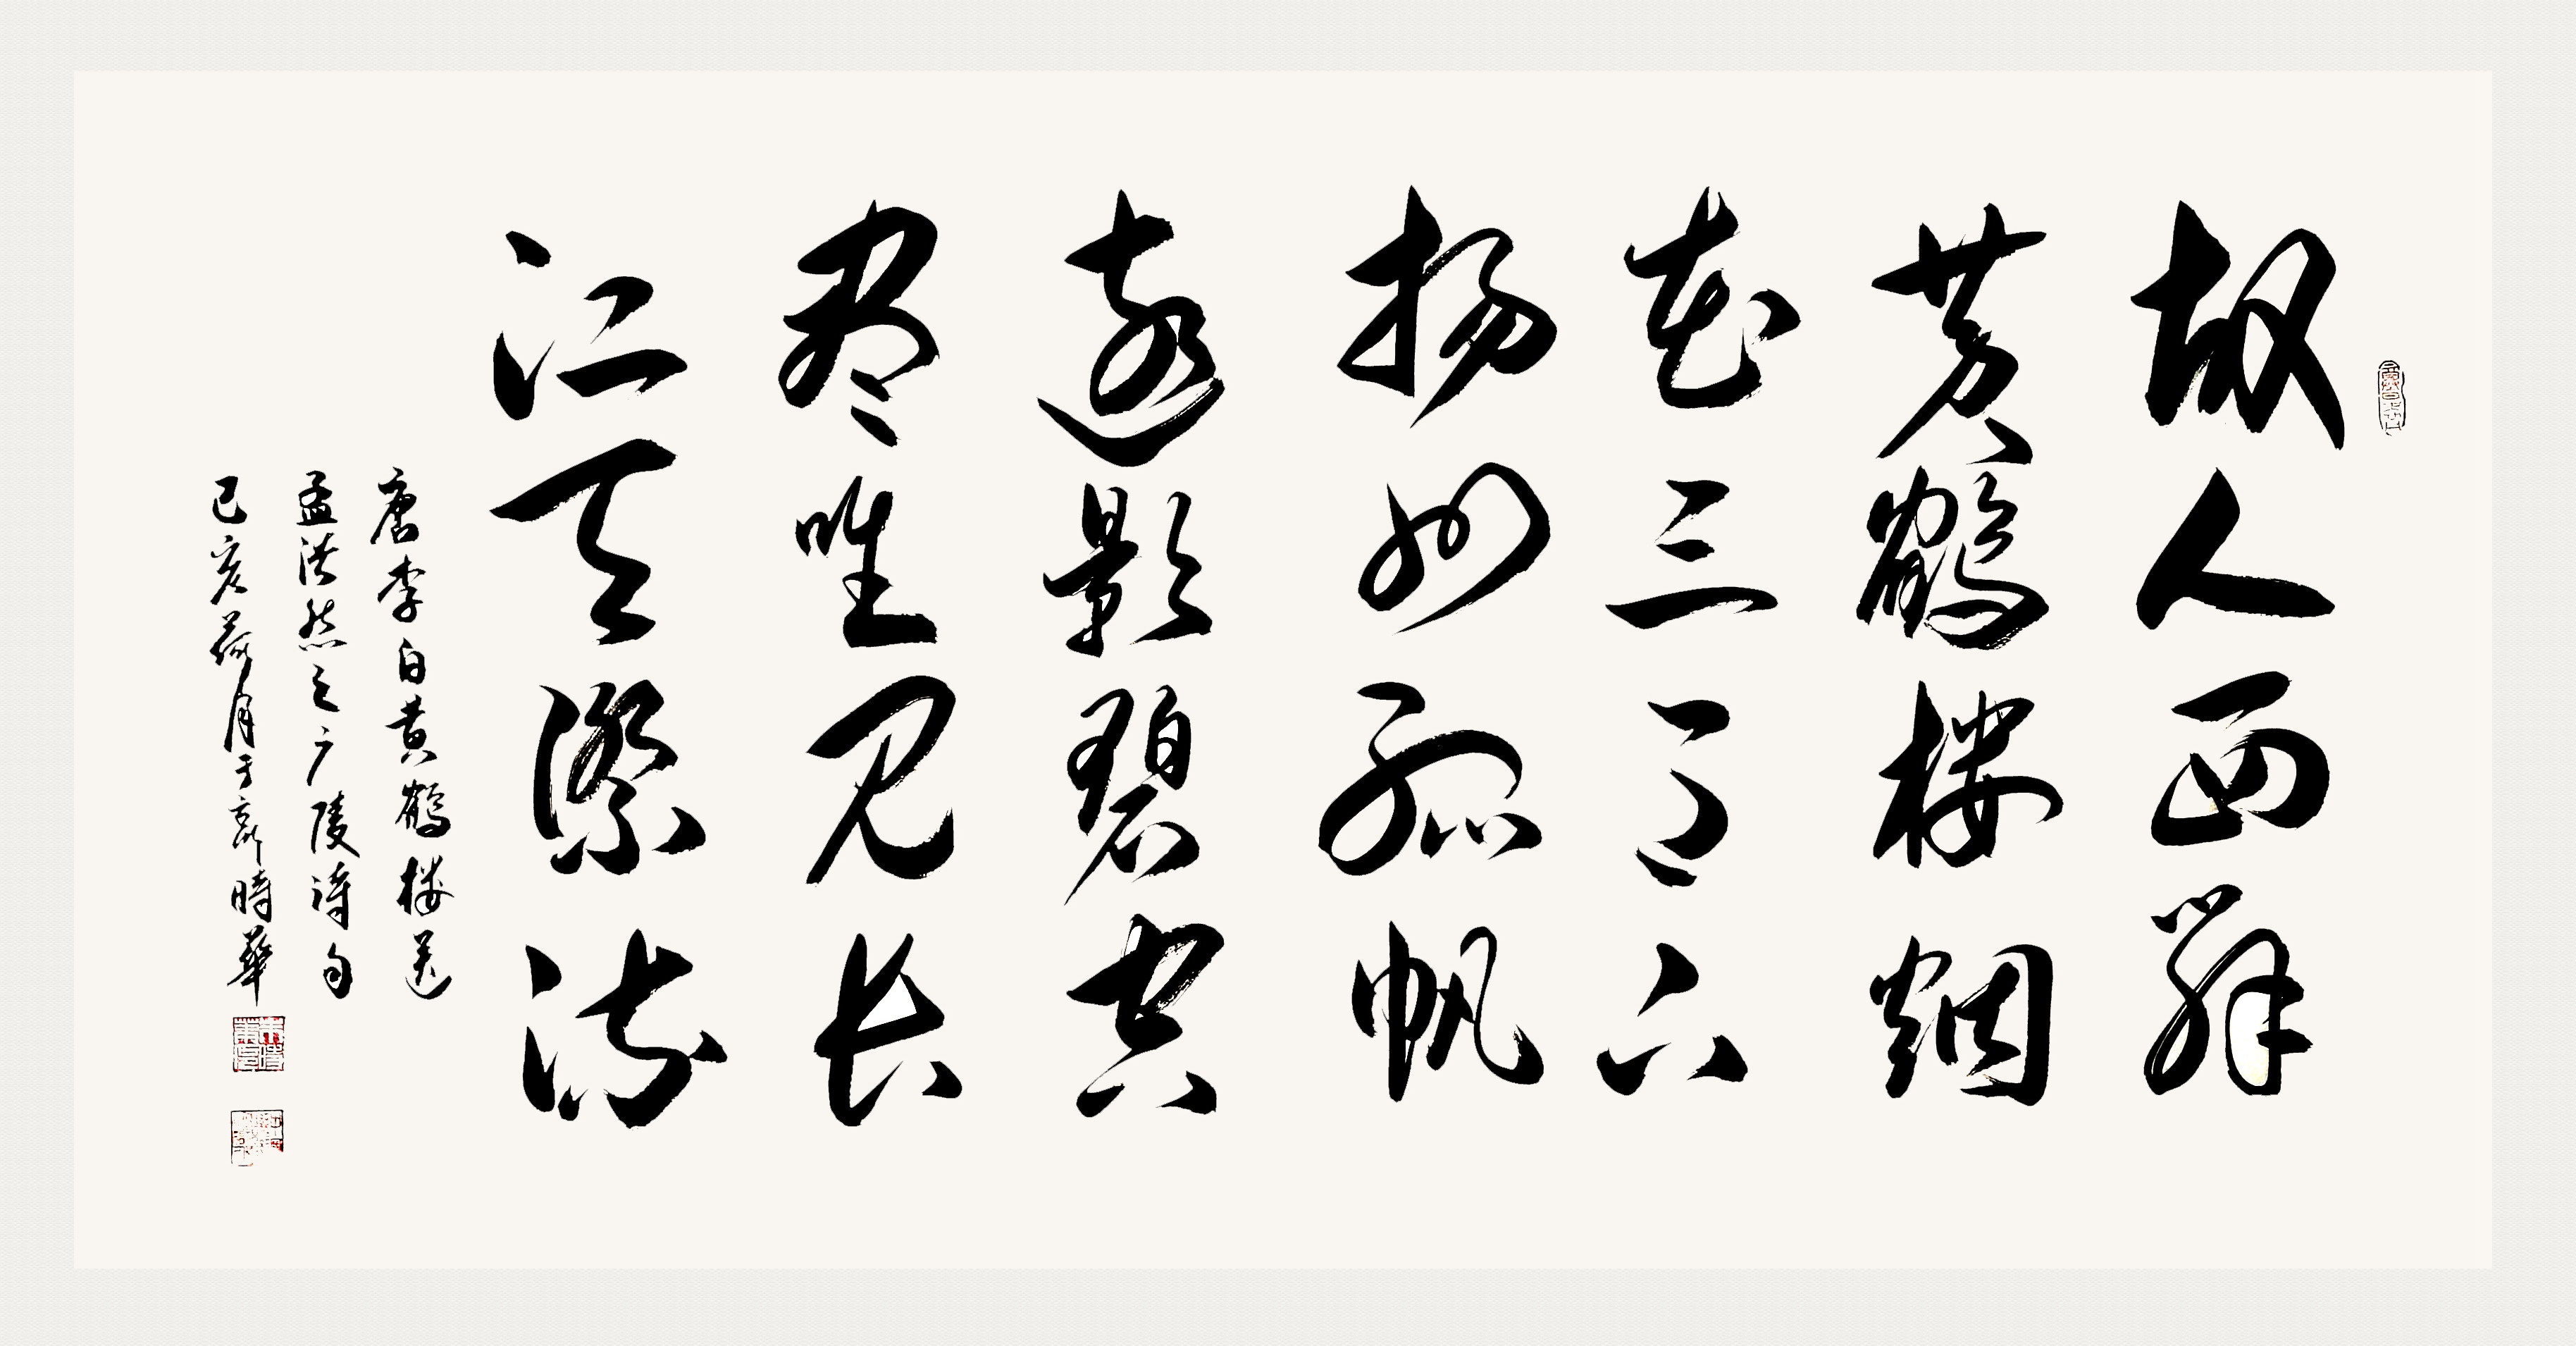 故人西辞
黄鹤楼烟
花三月下
扬州孤帆
远影碧空
尽唯见长
江天际流
唐李白黄鹤楼送
孟浩然之广陵诗句
己亥荷月于時華